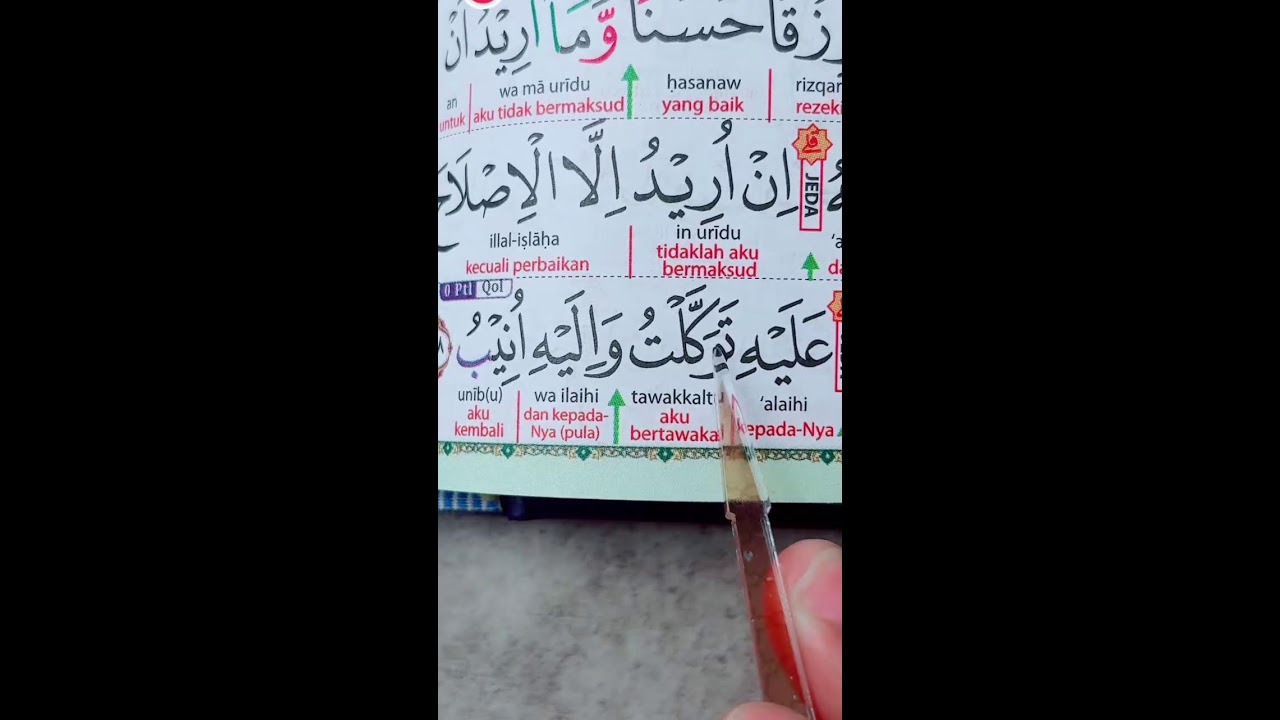 رِزْقًا حَسَنًا وَّمَآ اُرِيْدُ اَنْ
rizqan ḥasanaw wa mā urīdu an
rezeki yang baik aku tidak bermaksud untuk
اِنْ اُرِيْدُ اِلَّا الْاِصْلَاحَ
JEDA
in urīdu illal-iṣlāḥa
tidaklah aku bermaksud kecuali perbaikan
0 Ptl Qol
عَلَيْهِ تَوَكَّلْتُ وَاِلَيْهِ اُنِيْبُ
‘alaihi tawakkaltu wa ilaihi unīb(u)
kepada-Nya aku bertawakal dan kepada-Nya (pula) aku kembali